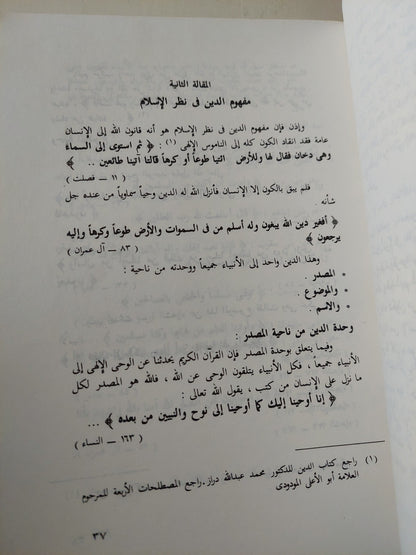 المقالة الثانية
مفهوم الدين فى نظر الإسلام
وإذن فإن مفهوم الدين فى نظر الإسلام هو أنه قانون الله إلى الإنسان
عامة فقد انقاد الكون كله إلى الناموس الإلهى (١) : ﴿ ثم استوى إلى السماء
وهى دخان فقال لها وللأرض ائتيا طوعاً أو كرهاً قالتا أتينا طائعين .. ﴾
( ١١ — فصلت )
فلم يبق بالكون إلا الإنسان فأنزل الله له الدين وحياً سماوياً من عنده جل
شأنه .
﴿ أفغير دين الله يبغون وله أسلم من فى السموات والأرض طوعاً وكرهاً وإليه
يرجعون ﴾
( ٨٣ — آل عمران )
وهذا الدين واحد إلى الأنبياء جميعاً ووحدته من ناحية :
• المصدر .
• والموضوع .
• والاسم .
وحدة الدين من ناحية المصدر :
وفيما يتعلق بوحدة المصدر فإن القرآن الكريم يحدثنا عن الوحى الإلهى إلى
الأنبياء جميعاً ، فكل الأنبياء يتلقون الوحى عن الله ، فالله هو المصدر لكل
ما نزل على الإنسان من كتب ، يقول الله تعالى :
﴿ إنا أوحينا إليك كما أوحينا إلى نوح والنبيين من بعده ﴾ ...
( ١٦٣ — النساء )
(١) راجع كتاب الدين للدكتور محمد عبدالله دراز.راجع المصطلحات الأربعة للمرحوم
العلامة أبو الأعلى المودودى
٣٧